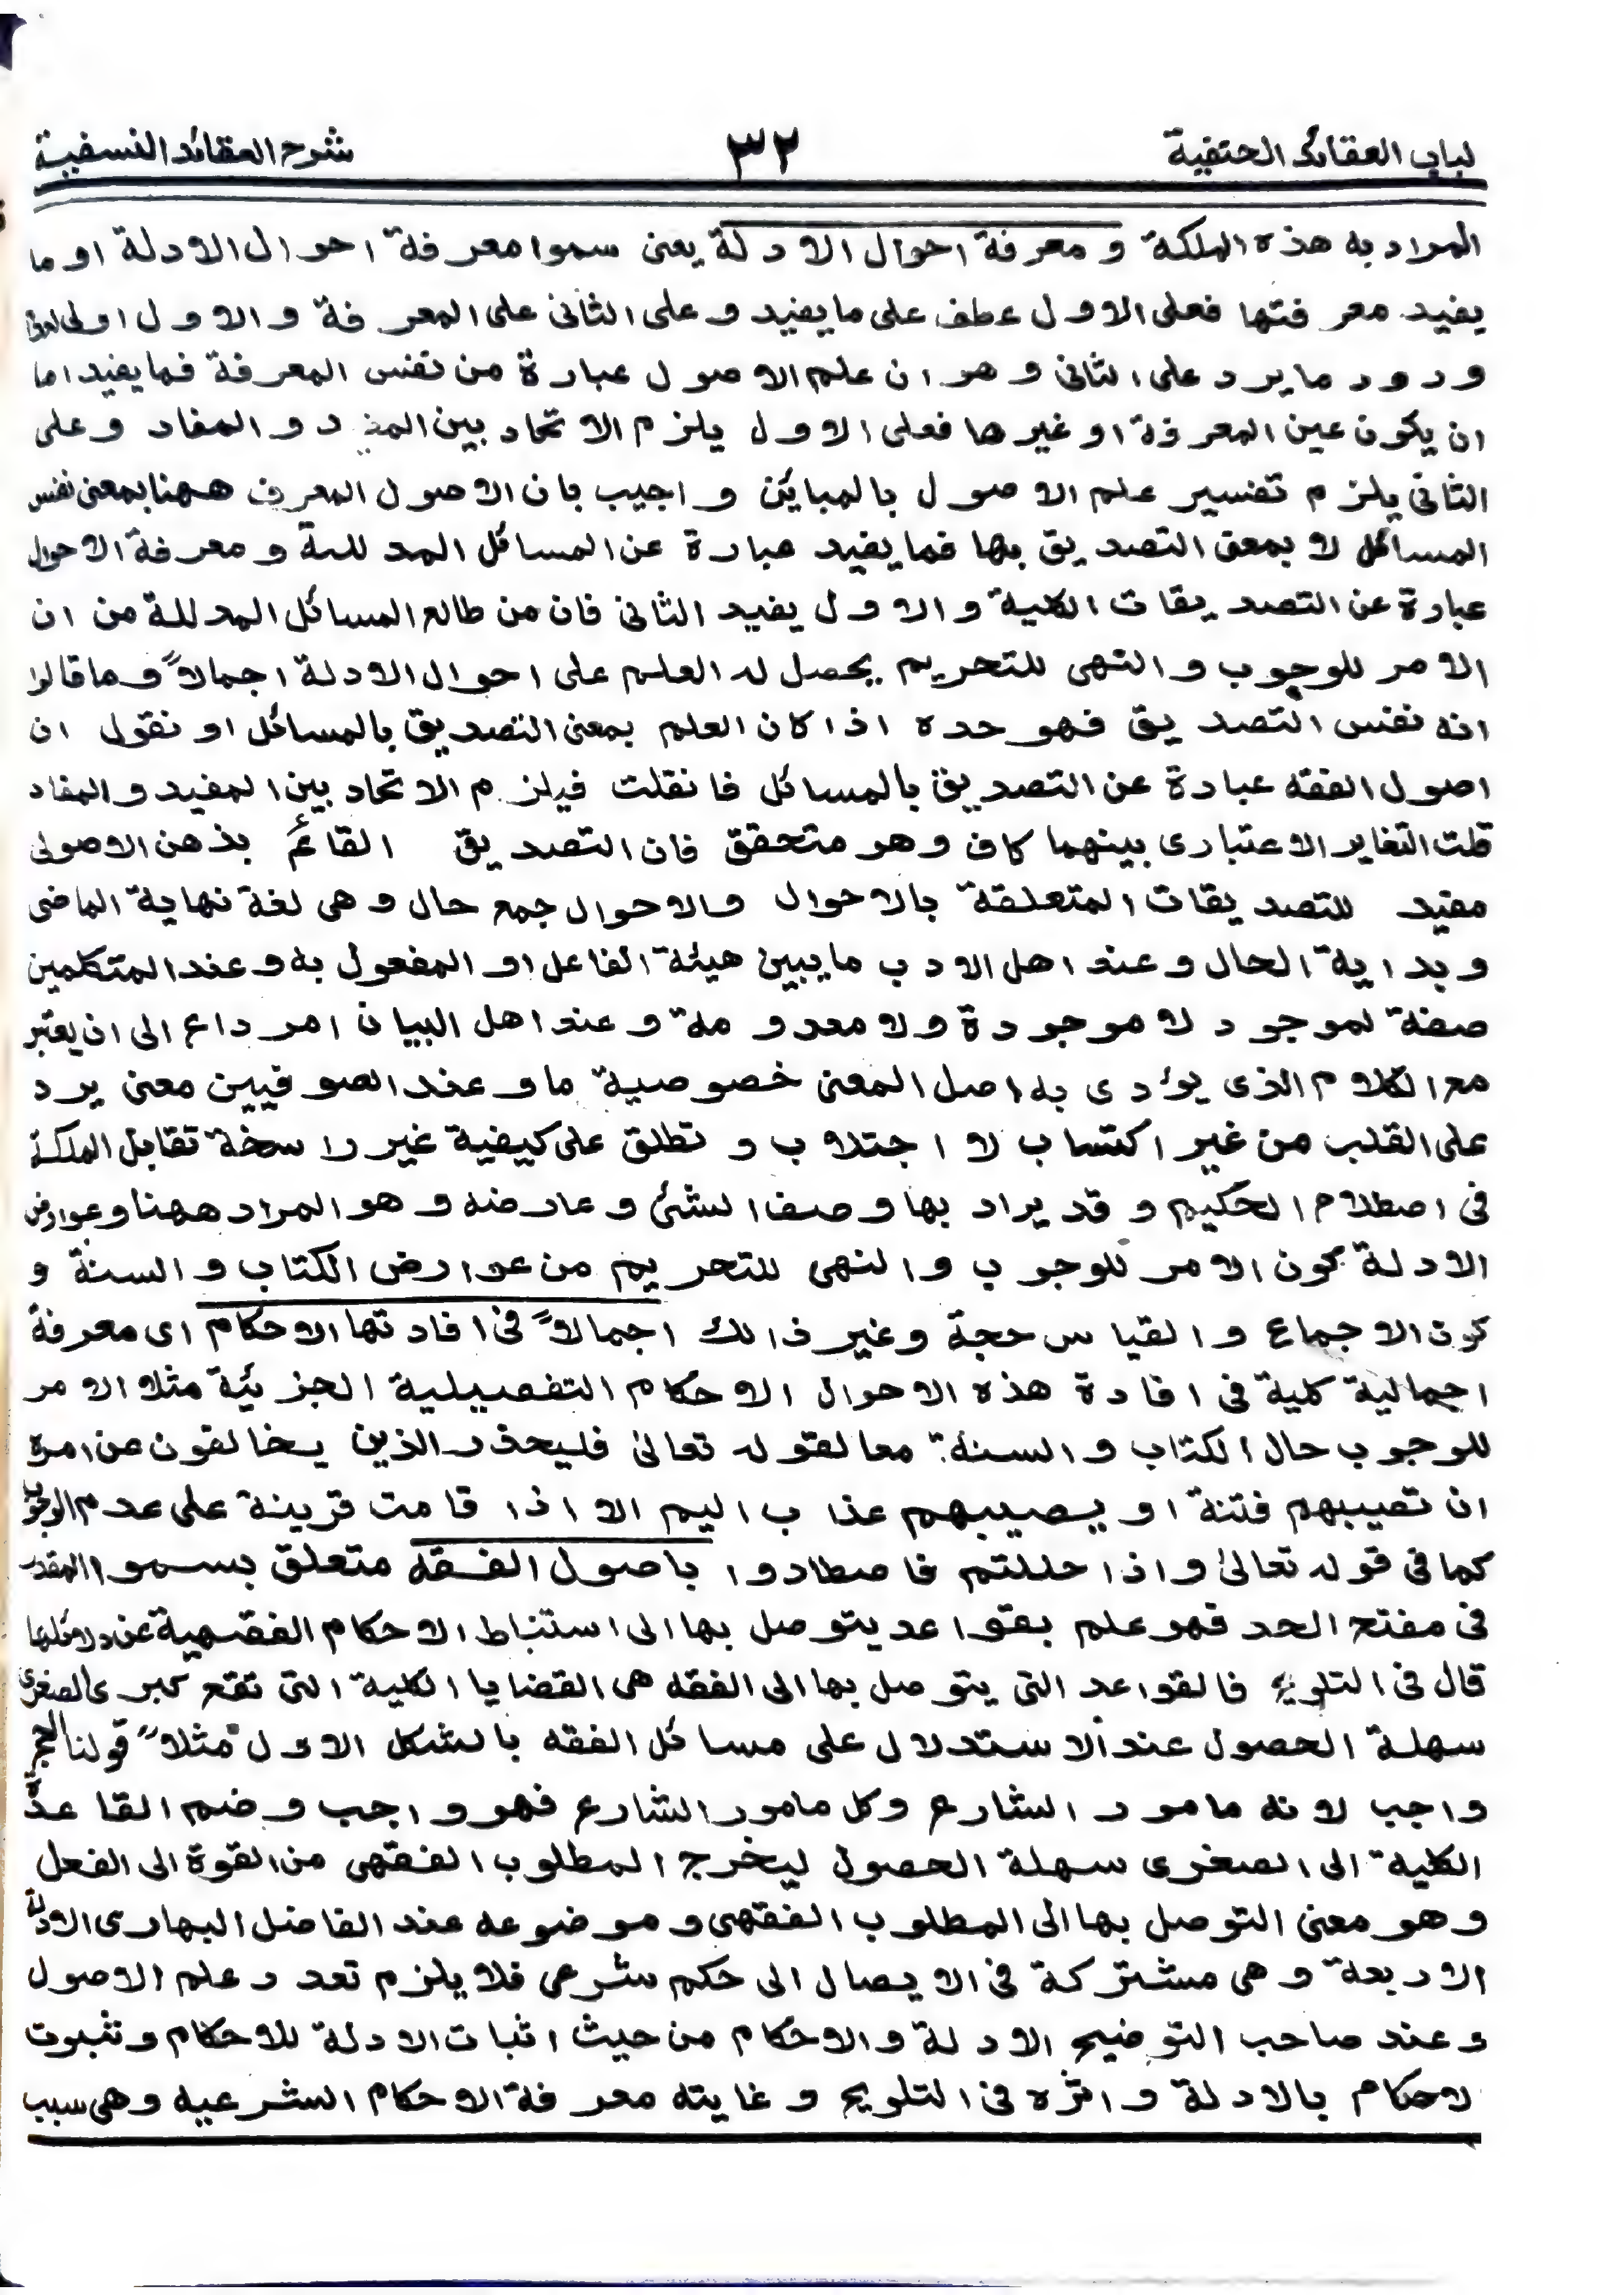 لباب العقائد الحنفية ٣٢ شرح العقائد النسفية
المراد به هذه الملكة و معرفة احوال الادلة يعنى سموا معرفة احوال الادلة او ما
يفيد معرفتها فعلى الاول عطف على ما يفيد و على الثانى على المعرفة و الاول اولى لعدم
ورود ما يرد على الثانى و هو ان علم الاصول عبارة من نفس المعرفة فما يفيد اما
ان يكون عين المعرفة او غيرها فعلى الاول يلزم الاتحاد بين المفيد و المفاد و على
الثانى يلزم تفسير علم الاصول بالمبائن و اجيب بان الاصول المعرف ههنا بمعنى نفس
المسائل لا بمعنى التصديق بها فما يفيد عبارة عن المسائل المدللة و معرفة الاحوال
عبارة عن التصديقات الكلية و الاول يفيد الثانى فان من طالع المسائل المدللة من ان
الامر للوجوب و النهى للتحريم يحصل له العلم على احوال الادلة اجمالاً و ما قالوا
انه نفس التصديق فهو حده اذا كان العلم بمعنى التصديق بالمسائل او نقول ان
اصول الفقه عبارة عن التصديق بالمسائل فانقلت فيلزم الاتحاد بين المفيد و المفاد
قلت التغاير الاعتبارى بينهما كاف و هو متحقق فان التصديق القائم بذهن الاصولى
مفيد للتصديقات المتعلقة بالاحوال والاحوال جمع حال و هى لغة نهاية الماضى
و بداية الحال و عند اهل الادب ما يبين هيئة الفاعل او المفعول به و عند المتكلمين
صفة لموجود لا موجودة ولا معدومة و عند اهل البيان امر داع الى ان يعتبر
مع الكلام الذى يؤدى به اصل المعنى خصوصية ما و عند الصوفيين معنى يرد
على القلب من غير اكتساب لا اجتلاب و تطلق على كيفية غير راسخة تقابل الملكة
فى اصطلاح الحكيم و قد يراد بها وصف الشئ و عارضه و هو المراد ههنا و عوارض
الادلة كون الامر للوجوب و النهى للتحريم من عوارض الكتاب و السنة و
كون الاجماع و القياس حجة و غير ذالك اجمالاً فى افادتها الاحكام اى معرفة
اجمالية كلية فى افادة هذه الاحوال الاحكام التفصيلية الجزئية مثلا الامر
للوجوب حال الكتاب و السنة معا لقوله تعالىٰ فليحذر الذين يخالفون عن امره
ان تصيبهم فتنة او يصيبهم عذاب اليم الا اذا قامت قرينة على عدم الوجوب
كما فى قوله تعالىٰ و اذا حللتم فاصطادوا باصول الفقه متعلق بسموا المقدر
فى مفتح الحد فهو علم بقواعد يتوصل بها الى استنباط الاحكام الفقهية عن دلائلها
قال فى التلويح فالقواعد التى يتوصل بها الى الفقه هى القضايا الكلية التى تقع كبرى لصغرى
سهلة الحصول عند الاستدلال على مسائل الفقه بالشكل الاول مثلاً قولنا الحج
واجب لانه مامور الشارع وكل مامور الشارع فهو واجب و ضم القاعدة
الكلية الى الصغرى سهلة الحصول ليخرج المطلوب الفقهى من القوة الى الفعل
و هو معنى التوصل بها الى المطلوب الفقهى و موضوعه عند الفاضل البهارى الادلة
الاربعة و هى مشتركة فى الايصال الى حكم شرعى فلا يلزم تعدد علم الاصول
و عند صاحب التوضيح الادلة و الاحكام من حيث اثبات الادلة للاحكام و ثبوت
لاحكام بالادلة و اثره فى التلويح و غايته معرفة الاحكام الشرعيه و هى سبب